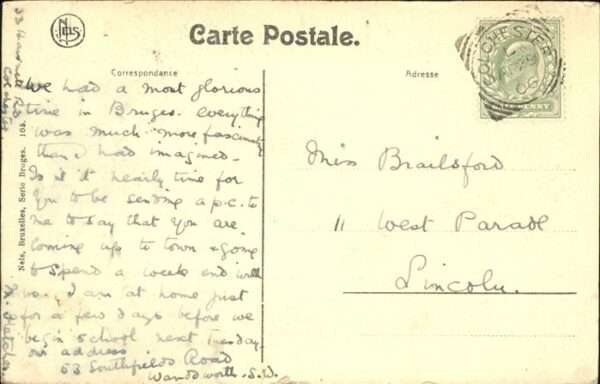 Carte Postale.
Correspondance
Adresse
COLCHESTER
HALF PENNY
Nels, Bruxelles, Serie Bruges. 103.
We had a most glorious
time in Bruges. Everything
was much more
than I had imagined.
Is it nearly time for
you to be sending a p.c. to
me to say that you are
coming up to town & going
to spend a week end with
us. I am at home just
for a few days before we
begin school next Tuesday
our address
53 Southfields Road
Wandsworth. S.W.
Miss Brailsford
11 West Parade
Lincoln.